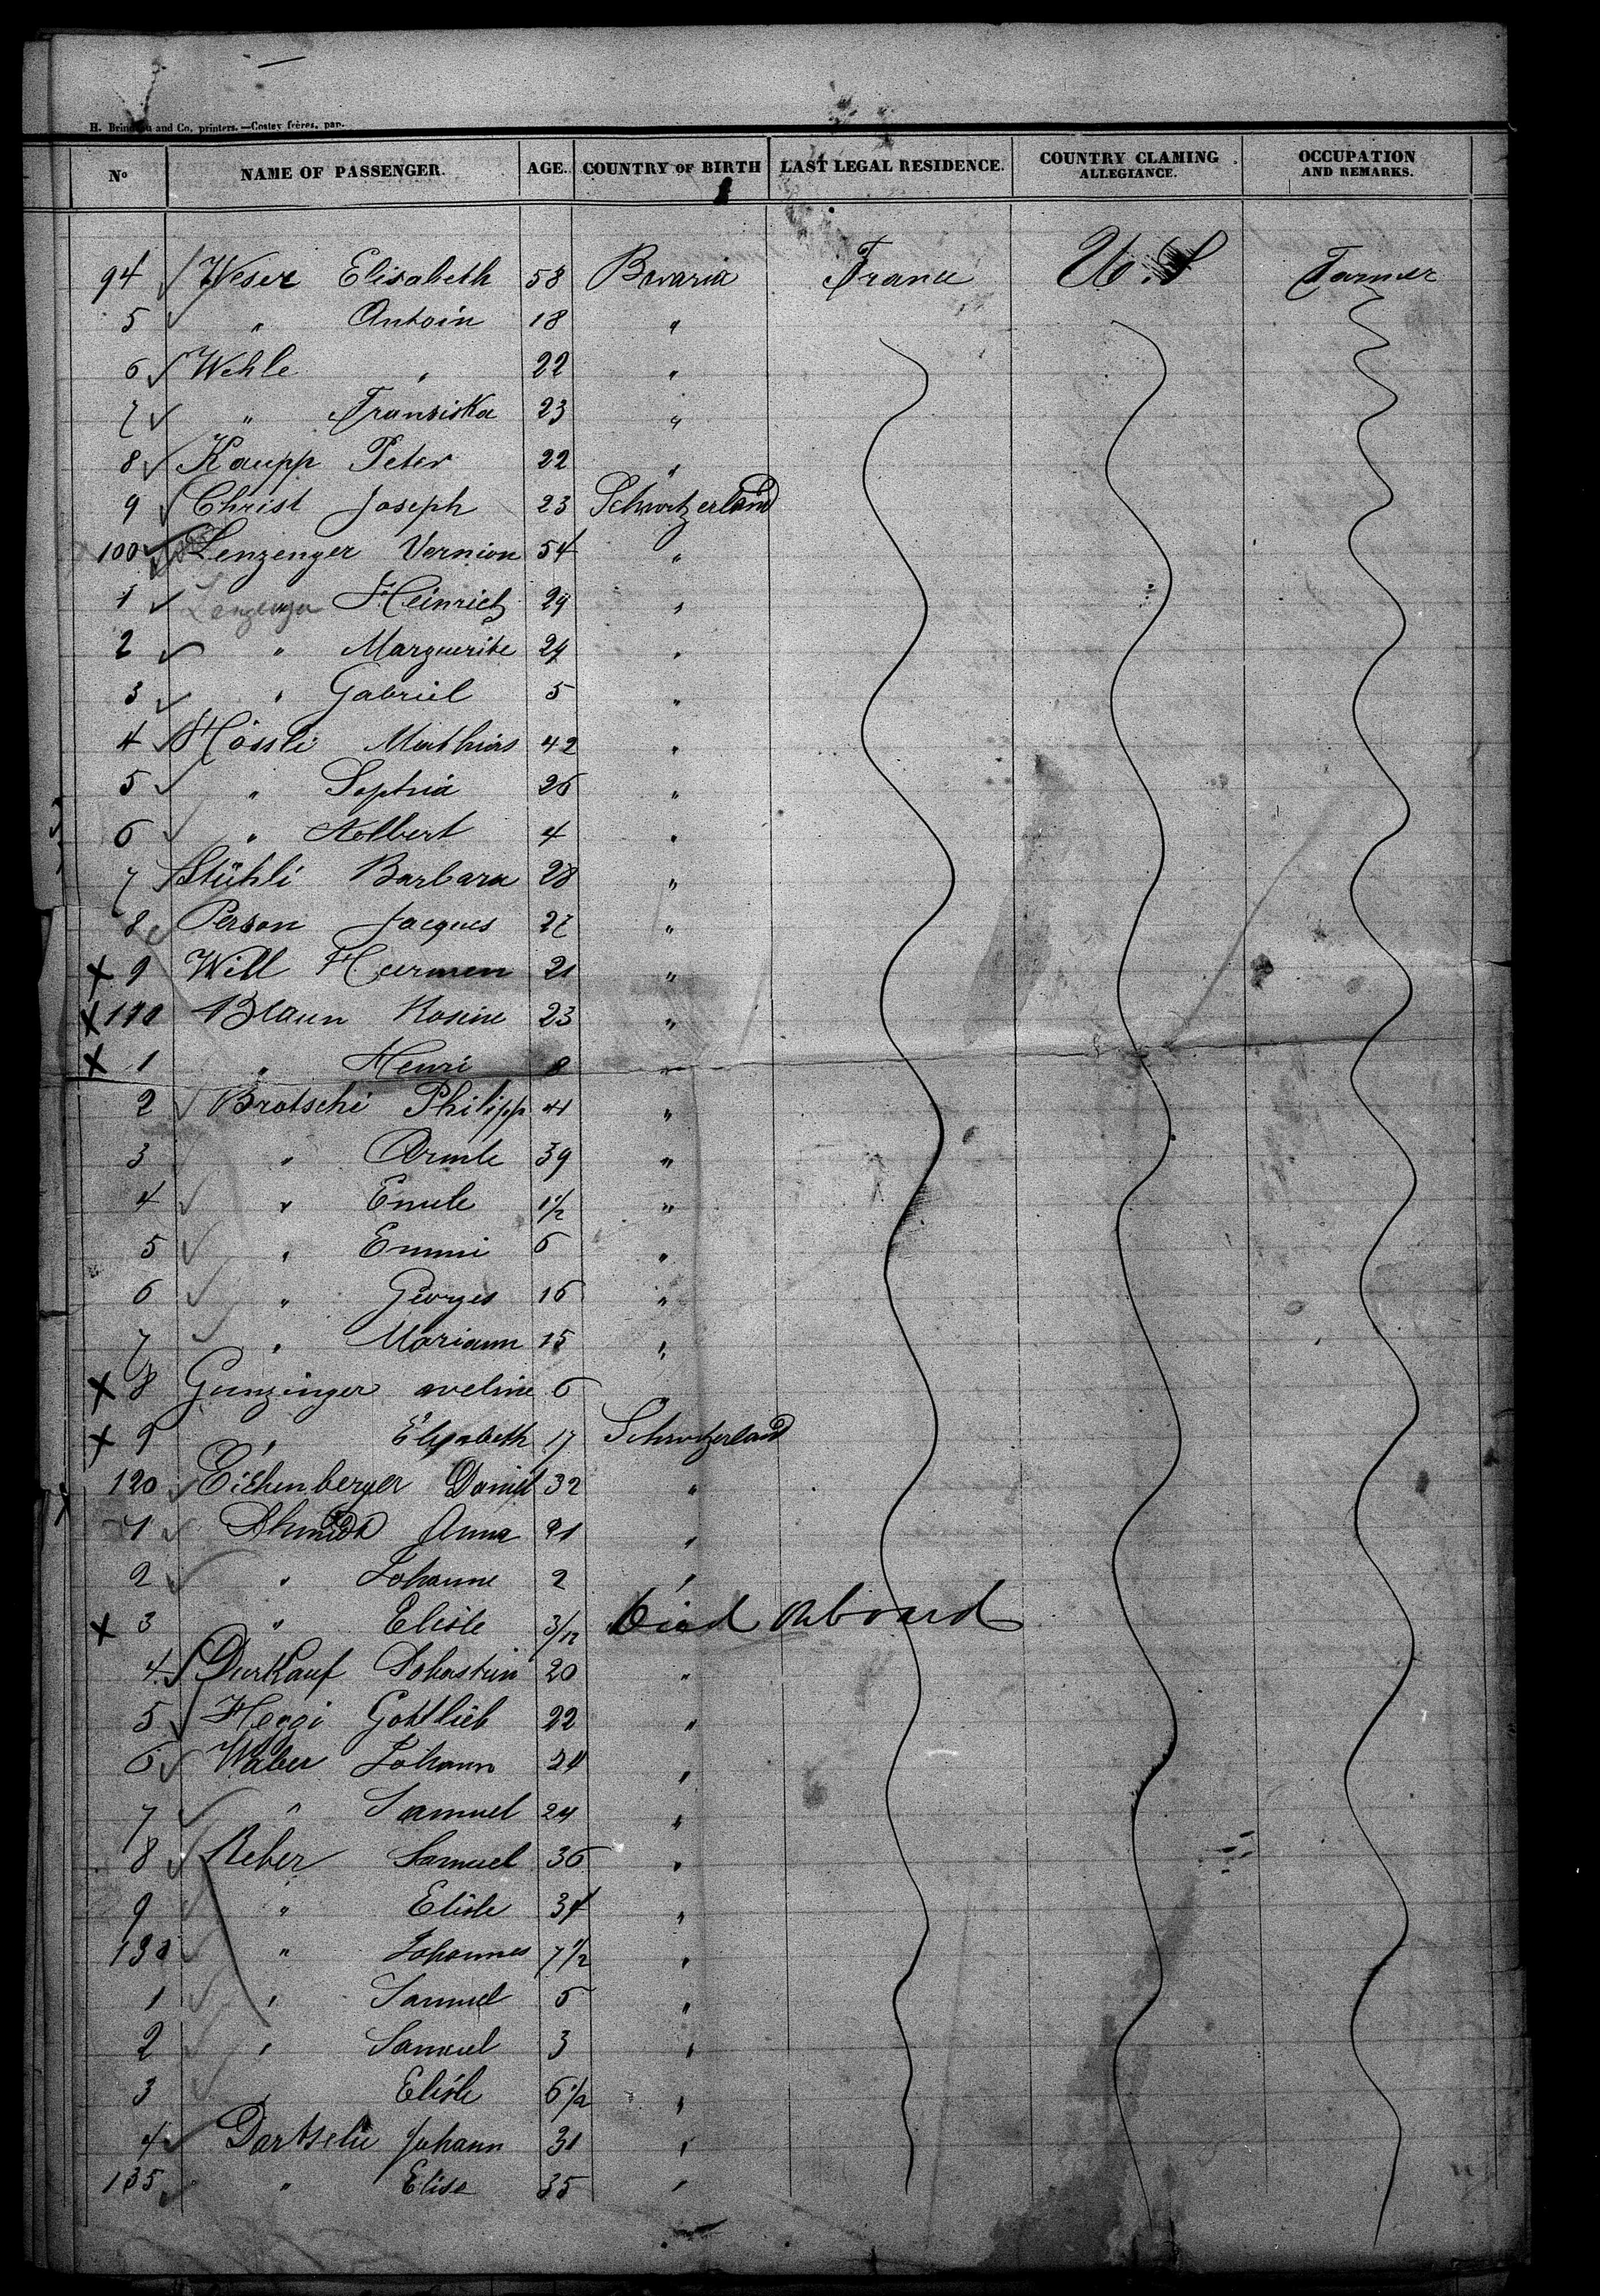 H. Brindeau and Co, printers.—Costey frères, pap.
Nº NAME OF PASSENGER. AGE. COUNTRY OF BIRTH LAST LEGAL RESIDENCE. COUNTRY CLAMING ALLEGIANCE. OCCUPATION AND REMARKS.
94 Weser Elisabeth 58 Bavaria France U.S Farmer
5 " Antoin 18 "
6 Wehle " 22 "
7 " Fransiska 23 "
8 Kaupp Peter 22 "
9 Christ Joseph 23 Schwitzerland
100 Lenzenger Vernion 54 "
1 Lenzenger Heinrich 29 "
2 " Marguerite 24 "
3 " Gabriel 5 "
4 Hössli Mathias 42 "
5 " Sophia 26 "
6 " Adlbert 4 "
7 Stühli Barbara 28 "
8 Person Jacques 27 "
X 9 Will Hermen 21 "
X 110 Braun Rosine 23 "
X 1 " Henri 8 "
2 Brotschi Philipp 41 "
3 " 39 "
4 " Emile 1 1/2 "
5 " Emmi 6 "
6 " Georges 16 "
7 " Mariann 15 "
X 8 Gunzinger aveline 6 "
X 9 " Elisabeth 17 Schwitzerland
120 Eichenberger Daniel 32 "
1 Shmidt Anna 21 "
2 " Johanne 2 "
X 3 " Elisle 3/12 Died Aboard
4 Durkauf 20 "
5 Heggi Gottlieb 22 "
6 Waber Johann 24 "
7 " Samuel 24 "
8 Reber Samuel 36 "
9 " Elisle 34 "
130 " Johannes 7 1/2 "
1 " Samuel 5 "
2 " Samuel 3 "
3 " Elisle 6 1/2 "
4 Dartschi Johann 31 "
135 " Elise 35 "